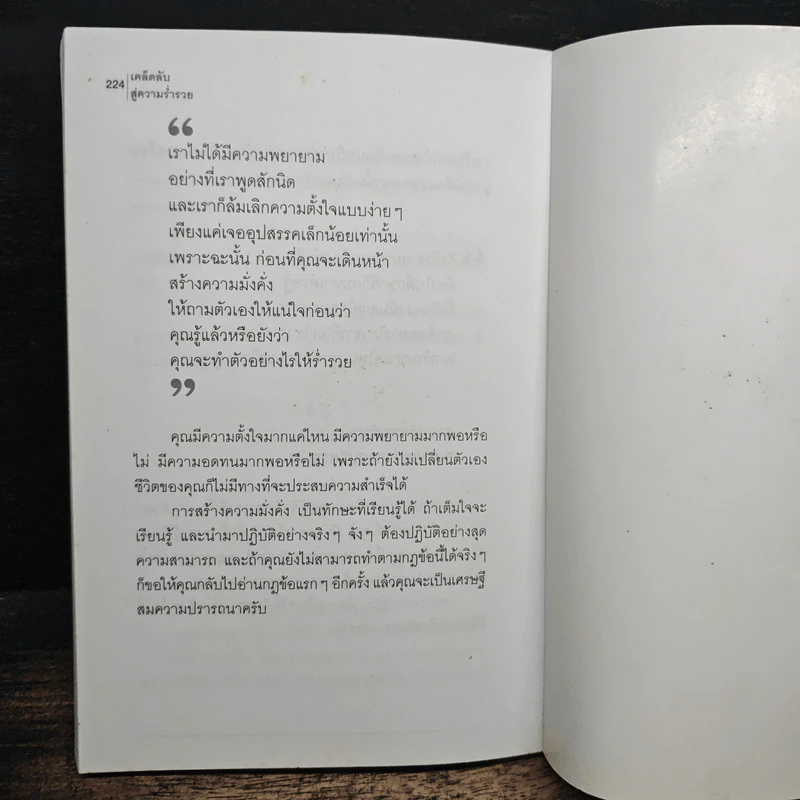 224 เคล็ดลับ
สู่ความร่ำรวย
“
เราไม่ได้มีความพยายาม
อย่างที่เราพูดสักนิด
และเราก็ล้มเลิกความตั้งใจแบบง่ายๆ
เพียงแค่เจออุปสรรคเล็กน้อยเท่านั้น
เพราะฉะนั้น ก่อนที่คุณจะเดินหน้า
สร้างความมั่งคั่ง
ให้ถามตัวเองให้แน่ใจก่อนว่า
คุณรู้แล้วหรือยังว่า
คุณจะทำตัวอย่างไรให้ร่ำรวย
”
คุณมีความตั้งใจมากแค่ไหน มีความพยายามมากพอหรือ
ไม่ มีความอดทนมากพอหรือไม่ เพราะถ้ายังไม่เปลี่ยนตัวเอง
ชีวิตของคุณก็ไม่มีทางที่จะประสบความสำเร็จได้
การสร้างความมั่งคั่ง เป็นทักษะที่เรียนรู้ได้ ถ้าเต็มใจจะ
เรียนรู้ และนำมาปฏิบัติอย่างจริงๆ จังๆ ต้องปฏิบัติอย่างสุด
ความสามารถ และถ้าคุณยังไม่สามารถทำตามกฎข้อนี้ได้จริงๆ
ก็ขอให้คุณกลับไปอ่านกฎข้อแรกๆ อีกครั้ง แล้วคุณจะเป็นเศรษฐี
สมความปรารถนาครับ